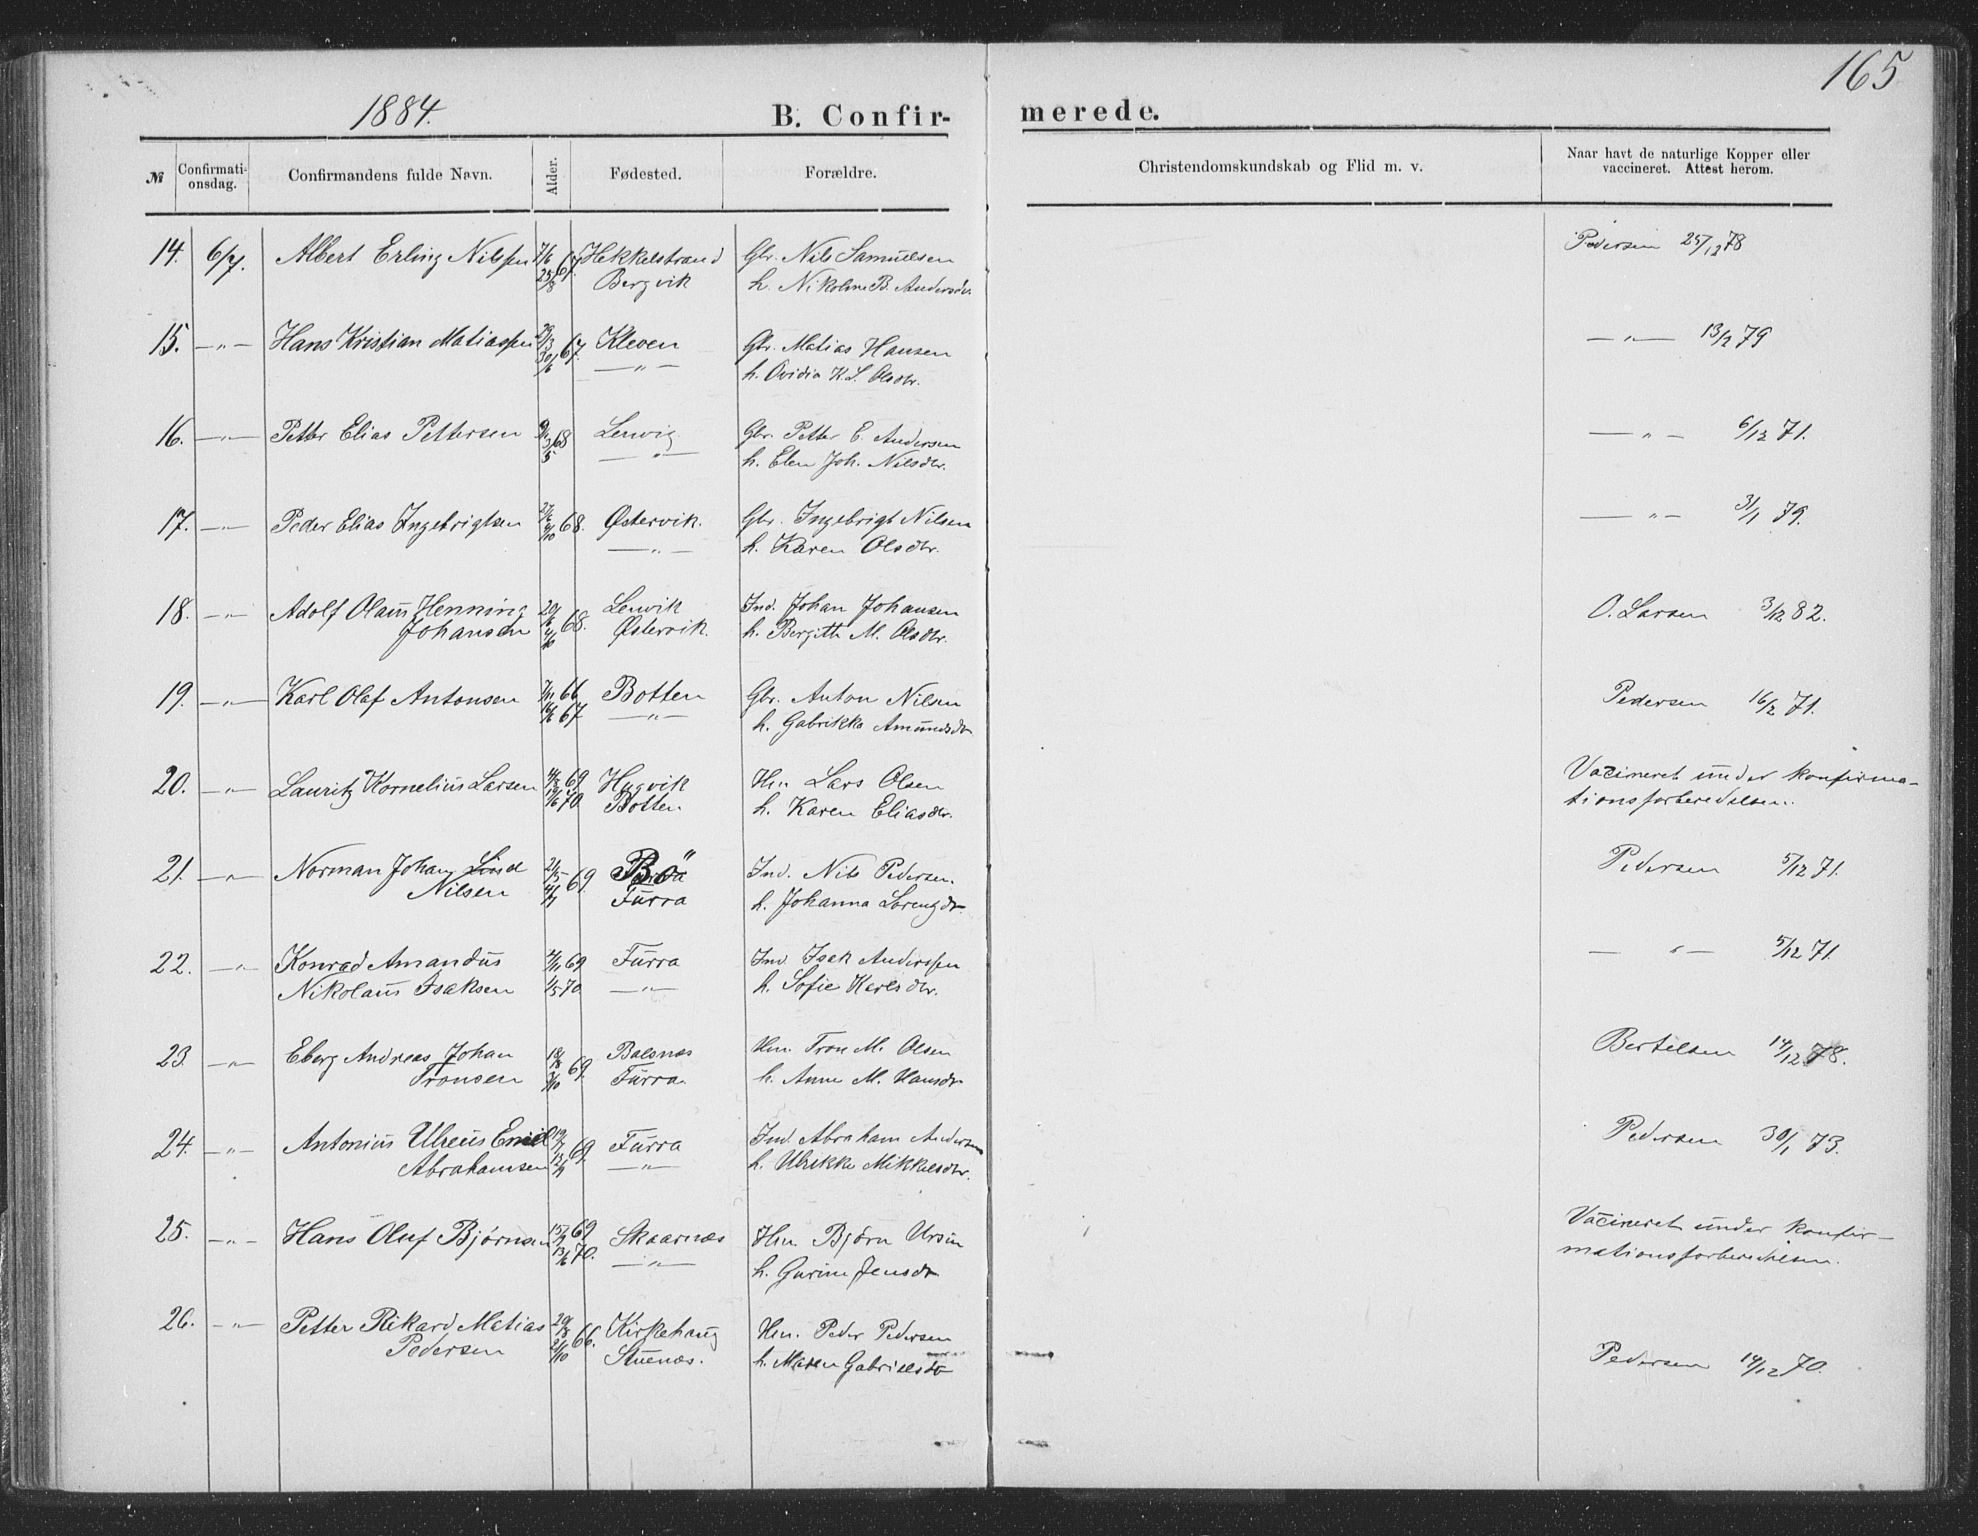 165
1884.
B. Confirmerede.
№ Confirmationsdag. Confirmandens fulde Navn. Alder. Fødested. Forældre. Christendomskundskab og Flid m. v. Naar havt de naturlige Kopper eller vaccineret. Attest herom.
14. 6/7. Albert Erling Nilssen 7/6 67 Hekkelstrand Gbr. Nils Samuelsen Pedersen 25/12 78
25/8 Bergvik h. Nikoline B. Andersdr.
15. —"— Hans Kristian Matiassen 29/3 67. Kleven Gbr. Matias Hansen —"— 13/2 79
30/6 —"— h. Ovidia K. S. Olsdtr.
16. —"— Petter Elias Pettersen 68 Lenvig Gbr. Petter E. Andersen —"— 6/12 71.
3/5 —"— h. Elen Joh. Nilsdtr.
17. —"— Peder Elias Ingebrigtsen 68. Østervik. Gbr. Ingebrigt Nilsen —"— 31/1 79.
4/10 —"— h. Karen Olsdtr.
18. —"— Adolf Olaus Henning 20/6 68. Lenvik Ind. Johan Johansen O. Larsen 3/12 82.
Johansen 4/10 Østervik. h. Bergitte M. Olsdtr.
19. —"— Karl Olaf Antonsen 7/11 66 Botten Gbr. Anton Nilsen Pedersen 16/2 71.
16/6 67 —"— h. Gabrikka Amundsdtr
20. —"— Lauritz Kornelius Larsen 69. Hugvik Hm. Lars Olsen Vacineret under konfirma-
19/6 70. Botten. h. Karen Eliasdtr. tionsforberedelsen.
21. —"— Norman Johan Lind 21/5 69. Bö Ind. Nils Pedersen. Pedersen 5/12 71.
Nilsen 4/7 Furra h. Johanna Lorentzdtr
22. —"— Konrad Amandus 4/11 69 Furra Ind. Isak Anderssen —"— 5/12 71.
Nikolaus Isaksen 1/5 70. —"— h. Sofie Karlsdtr.
23. —"— Eberg Andreas Johan 18/8 69. Balsnæs Hm. Tron M. Olsen Bertelsen 14/12 78.
Tronsen 3/10 Furra. h. Anne M. Hansdtr
24. —"— Antonius Ulreus Emil 19/7 69. Furra Ind. Abraham Andersen Pedersen 30/1 73.
Abrahamsen —"— h. Ulrikke Mikkelsdtr.
25. —"— Hans Oluf Bjørnsen 69. Skaarnæs Hm. Bjørn Ursin Vacineret under konfir-
13/6 70. —"— h. Gurine Jensdtr mationsforberedelsen.
26. —"— Petter Rikard Matias 29/8 66. Kirkehaug Hm. Peder Pedersen
Pedersen 21/10 Stuenæs. h. Maren Gabrielsdtr Pedersen 14/12 70.